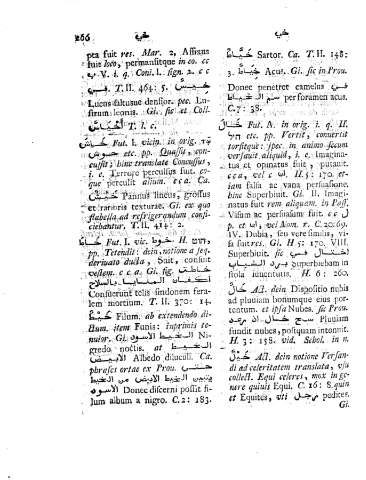 266
خي
خي
pea fuit res. Mar. 2, Affixus
fuit loco, permansitque in eo. c c
ب V. i. q. Conj. I. sign. 2. c c
في. T. II. 464: 5. خيس
Lucus saltusue densior. pec. Lu-
strum leonis. Gl. sic et Coll.
T. i. c.
Fut. I. vicin. in orig.
etc. pp. Quassit, con-
cussit; hinc translate Concussus,
i. e. Terrore percussus fuit. eo-
que percult alium. c c a. Ca.
Pannus lineus, grossus
et rarioris texturae. Gl. ex quo
flabella ad refrigerandum confi-
ciebantur. T. II. 414: 2.
خاط Fut. I. vic. H.
pp. Tetendit: dein, notione a sen-
deriuato ducta, Suit, consuit
vestem. c c a. Gl. fig. خاطت
Consuerunt telis sindonem fera-
lem mortium. T. II. 370: 14.
خيط Filum. ab extendendo di-
ctum. item Funis: inprimis te-
nuior. Gl. الخيط الاسود Ni-
gredo noctis. at الخيط
الابيض Albedo diluculi. Ca.
phrases ortae ex Prou. حتى
يتبين الخيط الابيض من الخيط
الاسود Donec discerni possit fi-
lum album a nigro. C. 2: 183.
خياط Sartor. Ca. T. II. 148:
3. خياط Acus. Gl. sic in Prou.
Donec penetret camelus في
سم الخياط per foramen acus.
C. 7: 38.
خال Fut. A. in orig. i. q. H.
etc. pp. Vertit, conuertit
torsitque: spec. in animo secum
versauit aliquid, i. e. Imagina-
tus et opinatus fuit, putauit.
c c a, vel c H. 5: 170. et-
iam falsa ac vana persuasione.
hinc Superbiuit. Gl. II. Imagi-
natus fuit rem aliquam. in Pass.
Visum ac persuasum fuit. c c ل
p. et ان, vel Nom. r. C. 20: 69.
IV. Dubia, seu vere similis, vi-
sa fuit res. Gl. H 5: 170. VIII.
Superbiuit. Gl. sic في اختال
برد الشباب Superbiebam in
stola iuuentutis. H. 6: 260.
خال Act. dein Dispositio nubis
ad pluuiam bonumque eius por-
tentum. et ipsa Nubes. sic Prou.
Pluuiam
fundit nubes, postquam intonuit.
H. 3: 158. vid. Schol. in n.
خيل Act. dein notione Versan-
di ad celeritatem translata, vsu
collect. Equi celeres, mox in ge-
nere quiuis Equi. C. 16: 8. quin
et Equites, vti رجل pedites.
Gl.